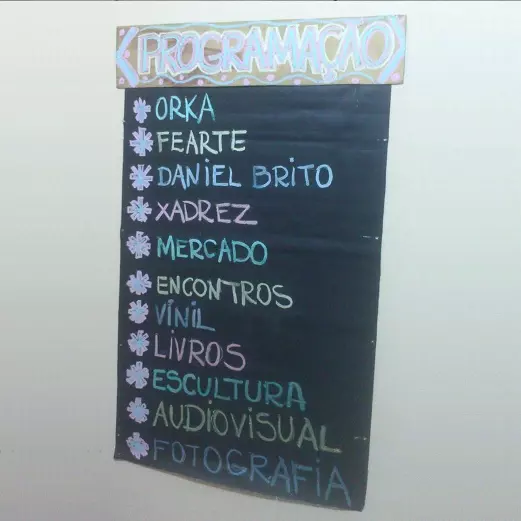 PROGRAMAÇAO
ORKA
FEARTE
DANIEL BRITO
XADREZ
MERCADO
ENCONTROS
VÍNIL
LIVROS
ESCULTURA
AUDIOVISUAL
FOTOGRAFIA